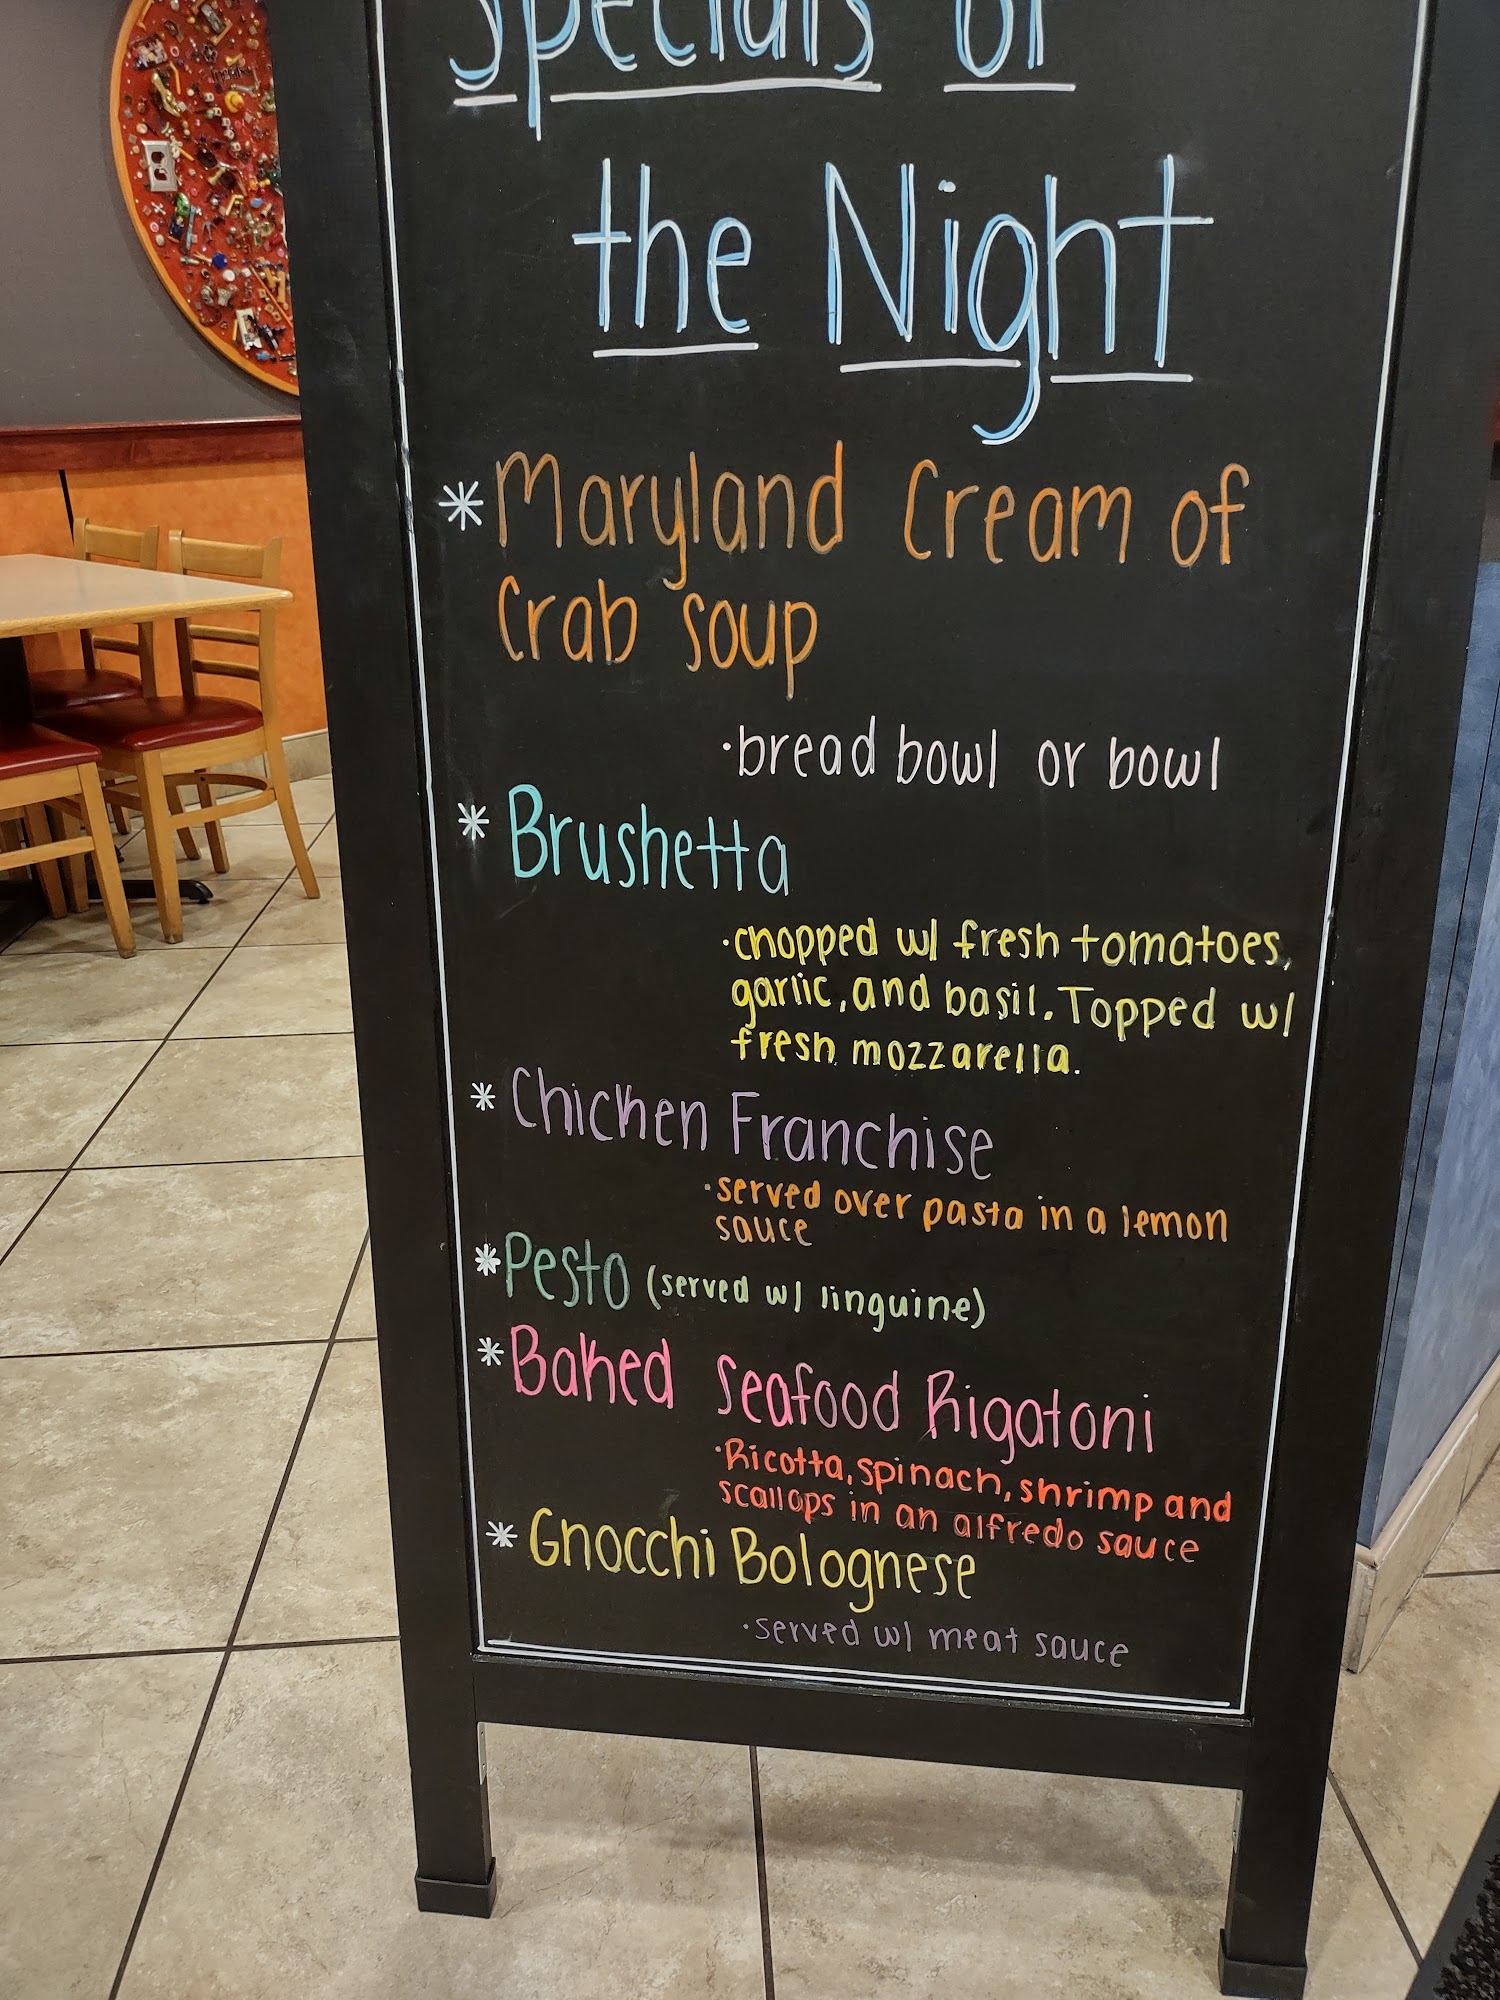 Specials of
the Night
* Maryland Cream of
Crab Soup
· bread bowl or bowl
* Brushetta
· chopped w/ fresh tomatoes,
garlic, and basil. Topped w/
fresh mozzarella.
* Chicken Franchise
· served over pasta in a lemon
sauce
* Pesto (served w/ linguine)
* Baked Seafood Rigatoni
· Ricotta, spinach, shrimp and
scallops in an alfredo sauce
* Gnocchi Bolognese
· served w/ meat sauce